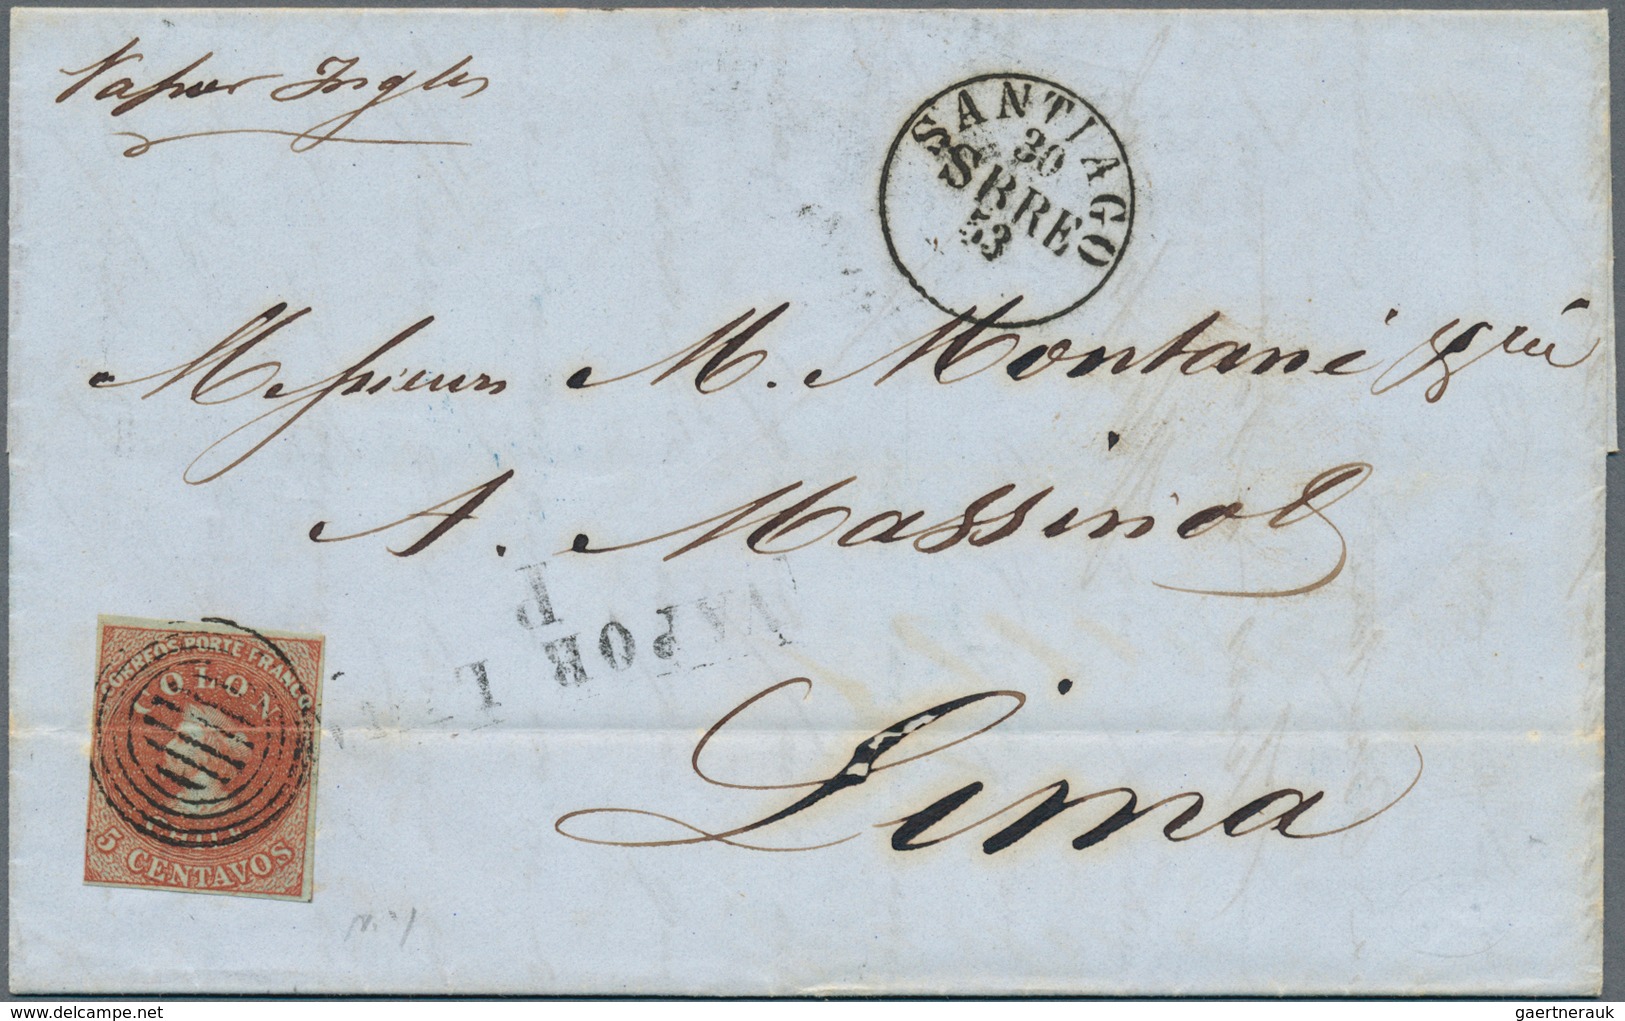 Vapor Ingles
SANTIAGO
30
SBRE
53
Messieurs M. Montané
A. Massinot
P
VAPOR I
Lima
CORREOS PORTE FRANCO
COLON
CHILE
5 CENTAVOS
gaertnerauk